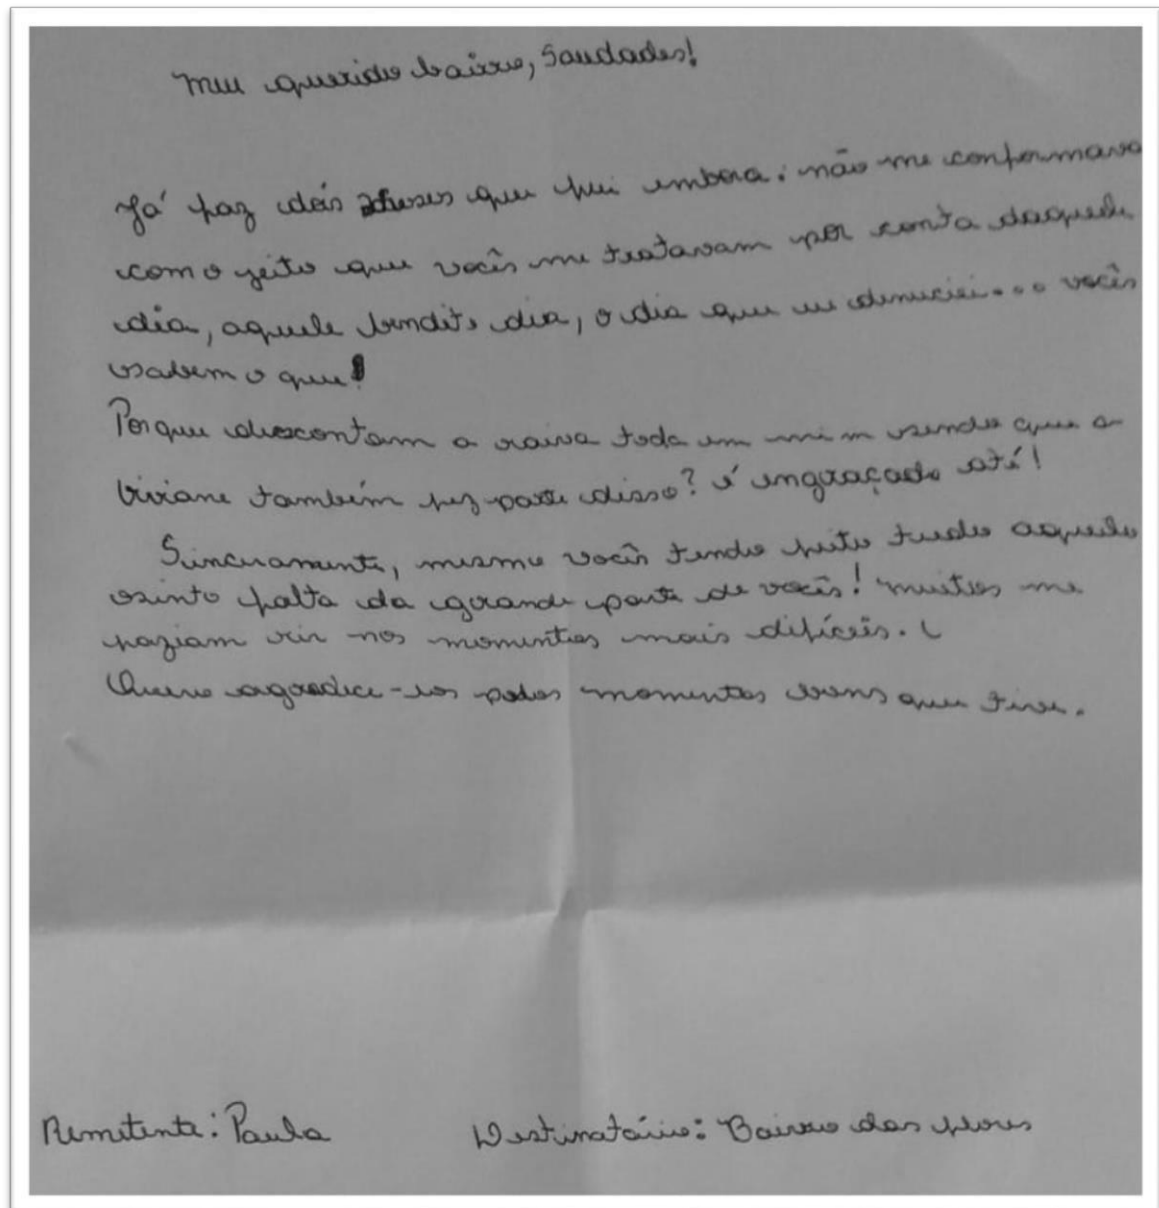 Meu querido bairro, Saudades!
Já faz dois meses que fui embora: não me conformava
com o jeito que vocês me tratavam por conta daquele
dia, aquele bendito dia, o dia que eu denunciei... vocês
sabem o que!
Porque descontam a raiva toda em mim sendo que a
Viviane também fez parte disso? é engraçado até!
Sinceramente, mesmo vocês tendo feito tudo aquilo
sinto falta da grande parte de vocês! muitos me
faziam rir nos momentos mais difíceis.
Quero agradece-los pelos momentos bons que tive.
Remetente: Paula
Destinatário: Bairro das flores